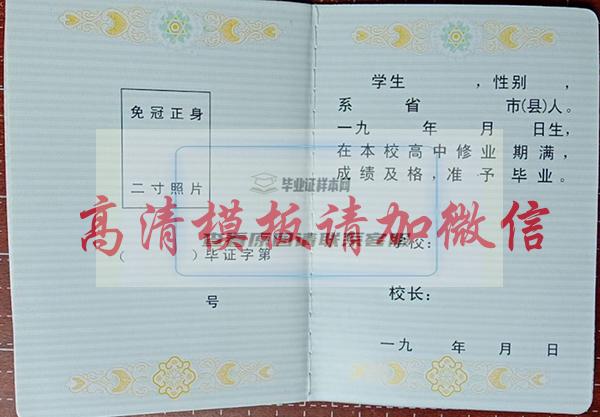 免冠正身
二寸照片
( )毕证字第
号
学生 ,性别 ,
系 省 市(县)人。
一九 年 月 日生,
在本校高中修业 期满,
成绩及格,准予毕业。
学校:
校长:
一九 年 月 日
毕业证样本网
查看原图请联系客服
高清模板请加微信